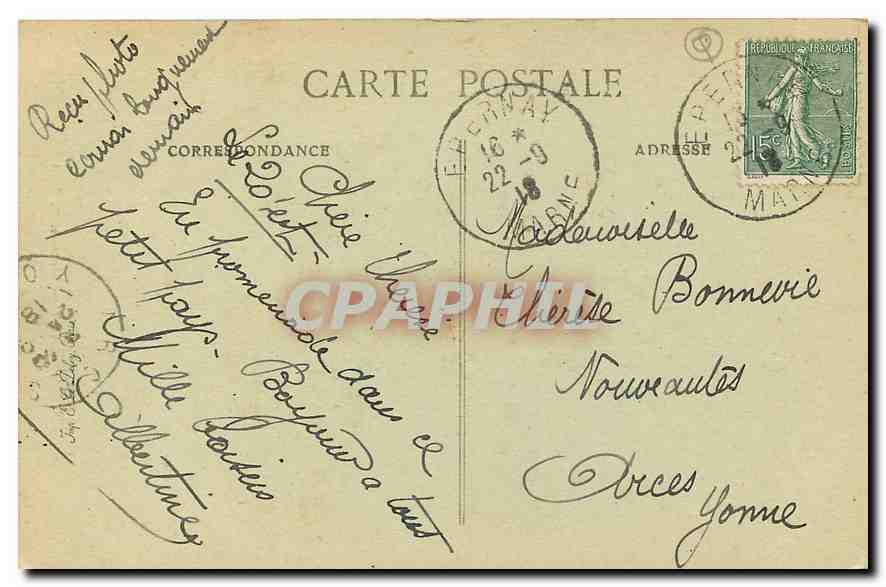 CARTE POSTALE
CORRESPONDANCE
ADRESSE
Reçu photo
demain
Le 20 est
Chère Thérèse
En promenade dans ce
petit pays - Bonjour a tous
Mille baisers
Albertine
EPERNAY
16 *
22 -9
18
MARNE
REPUBLIQUE FRANÇAISE
15c
POSTES
EPERNAY
22 -9
18
MARNE
Mademoiselle
Thérèse Bonnevie
Nouveautés
Arces
Yonne
CPAPHIL